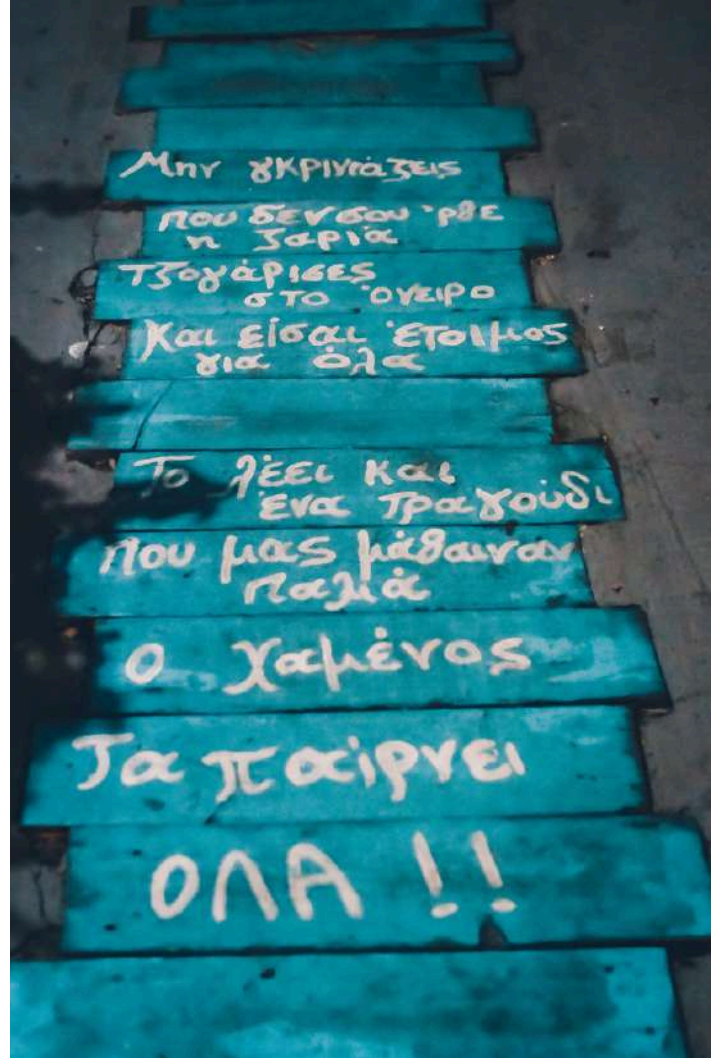 Μην γκρινιάζεις
που δεν σου 'ρθε
η ζαριά
Τζογάρισες
στο όνειρο
Και είσαι έτοιμος
για όλα
Το λέει και
ένα τραγούδι
που μας μάθαιναν
παλιά
Ο χαμένος
Τα παίρνει
ΟΛΑ !!